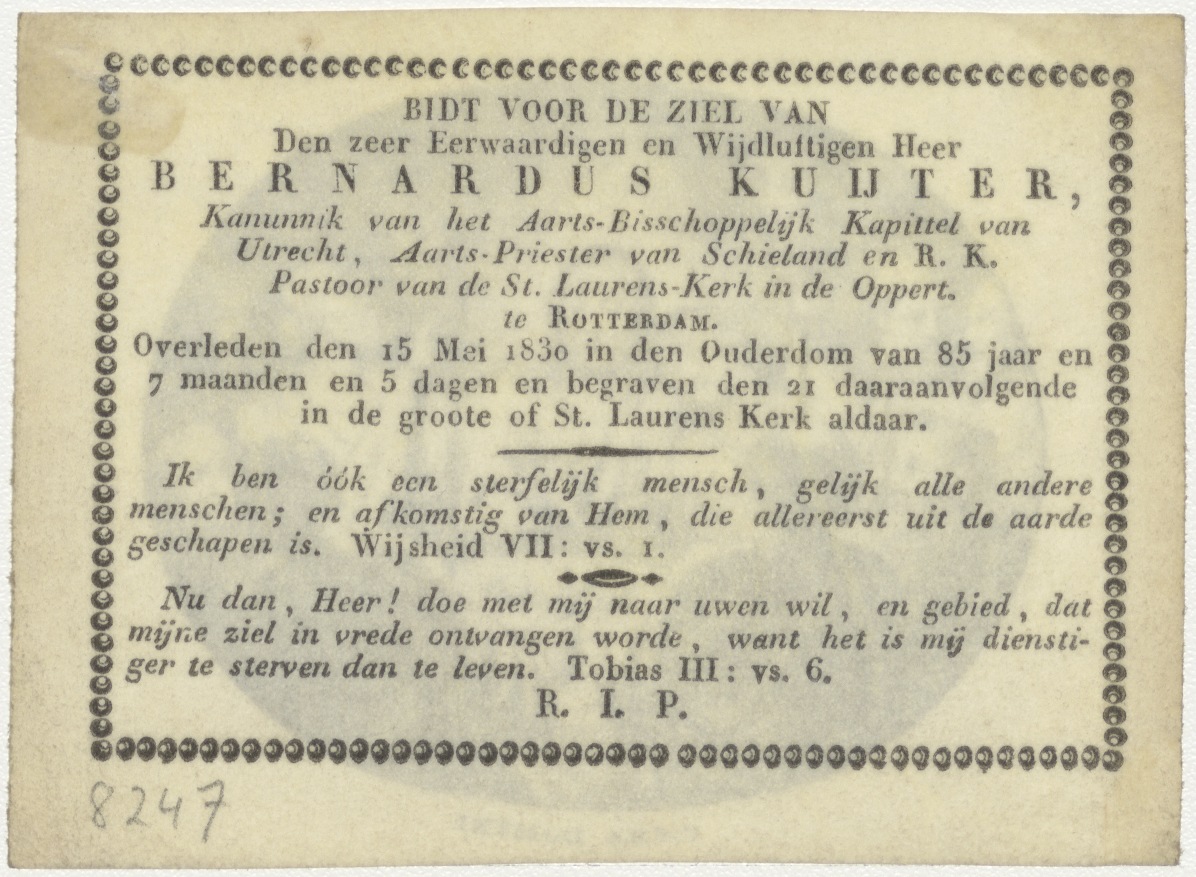 BIDT VOOR DE ZIEL VAN
Den zeer Eerwaardigen en Wijdluftigen Heer
BERNARDUS KUIJTER,
Kanunnik van het Aarts-Bisschoppelijk Kapittel van
Utrecht, Aarts-Priester van Schieland en R. K.
Pastoor van de St. Laurens-Kerk in de Oppert.
te ROTTERDAM.
Overleden den 15 Mei 1830 in den Ouderdom van 85 jaar en
7 maanden en 5 dagen en begraven den 21 daaraanvolgende
in de groote of St. Laurens Kerk aldaar.
Ik ben óók een sterfelijk mensch, gelijk alle andere
menschen; en afkomstig van Hem, die allereerst uit de aarde
geschapen is. Wijsheid VII: vs. 1.
Nu dan, Heer! doe met mij naar uwen wil, en gebied, dat
mijne ziel in vrede ontvangen worde, want het is mij diensti-
ger te sterven dan te leven. Tobias III: vs. 6.
R. I. P.
8247